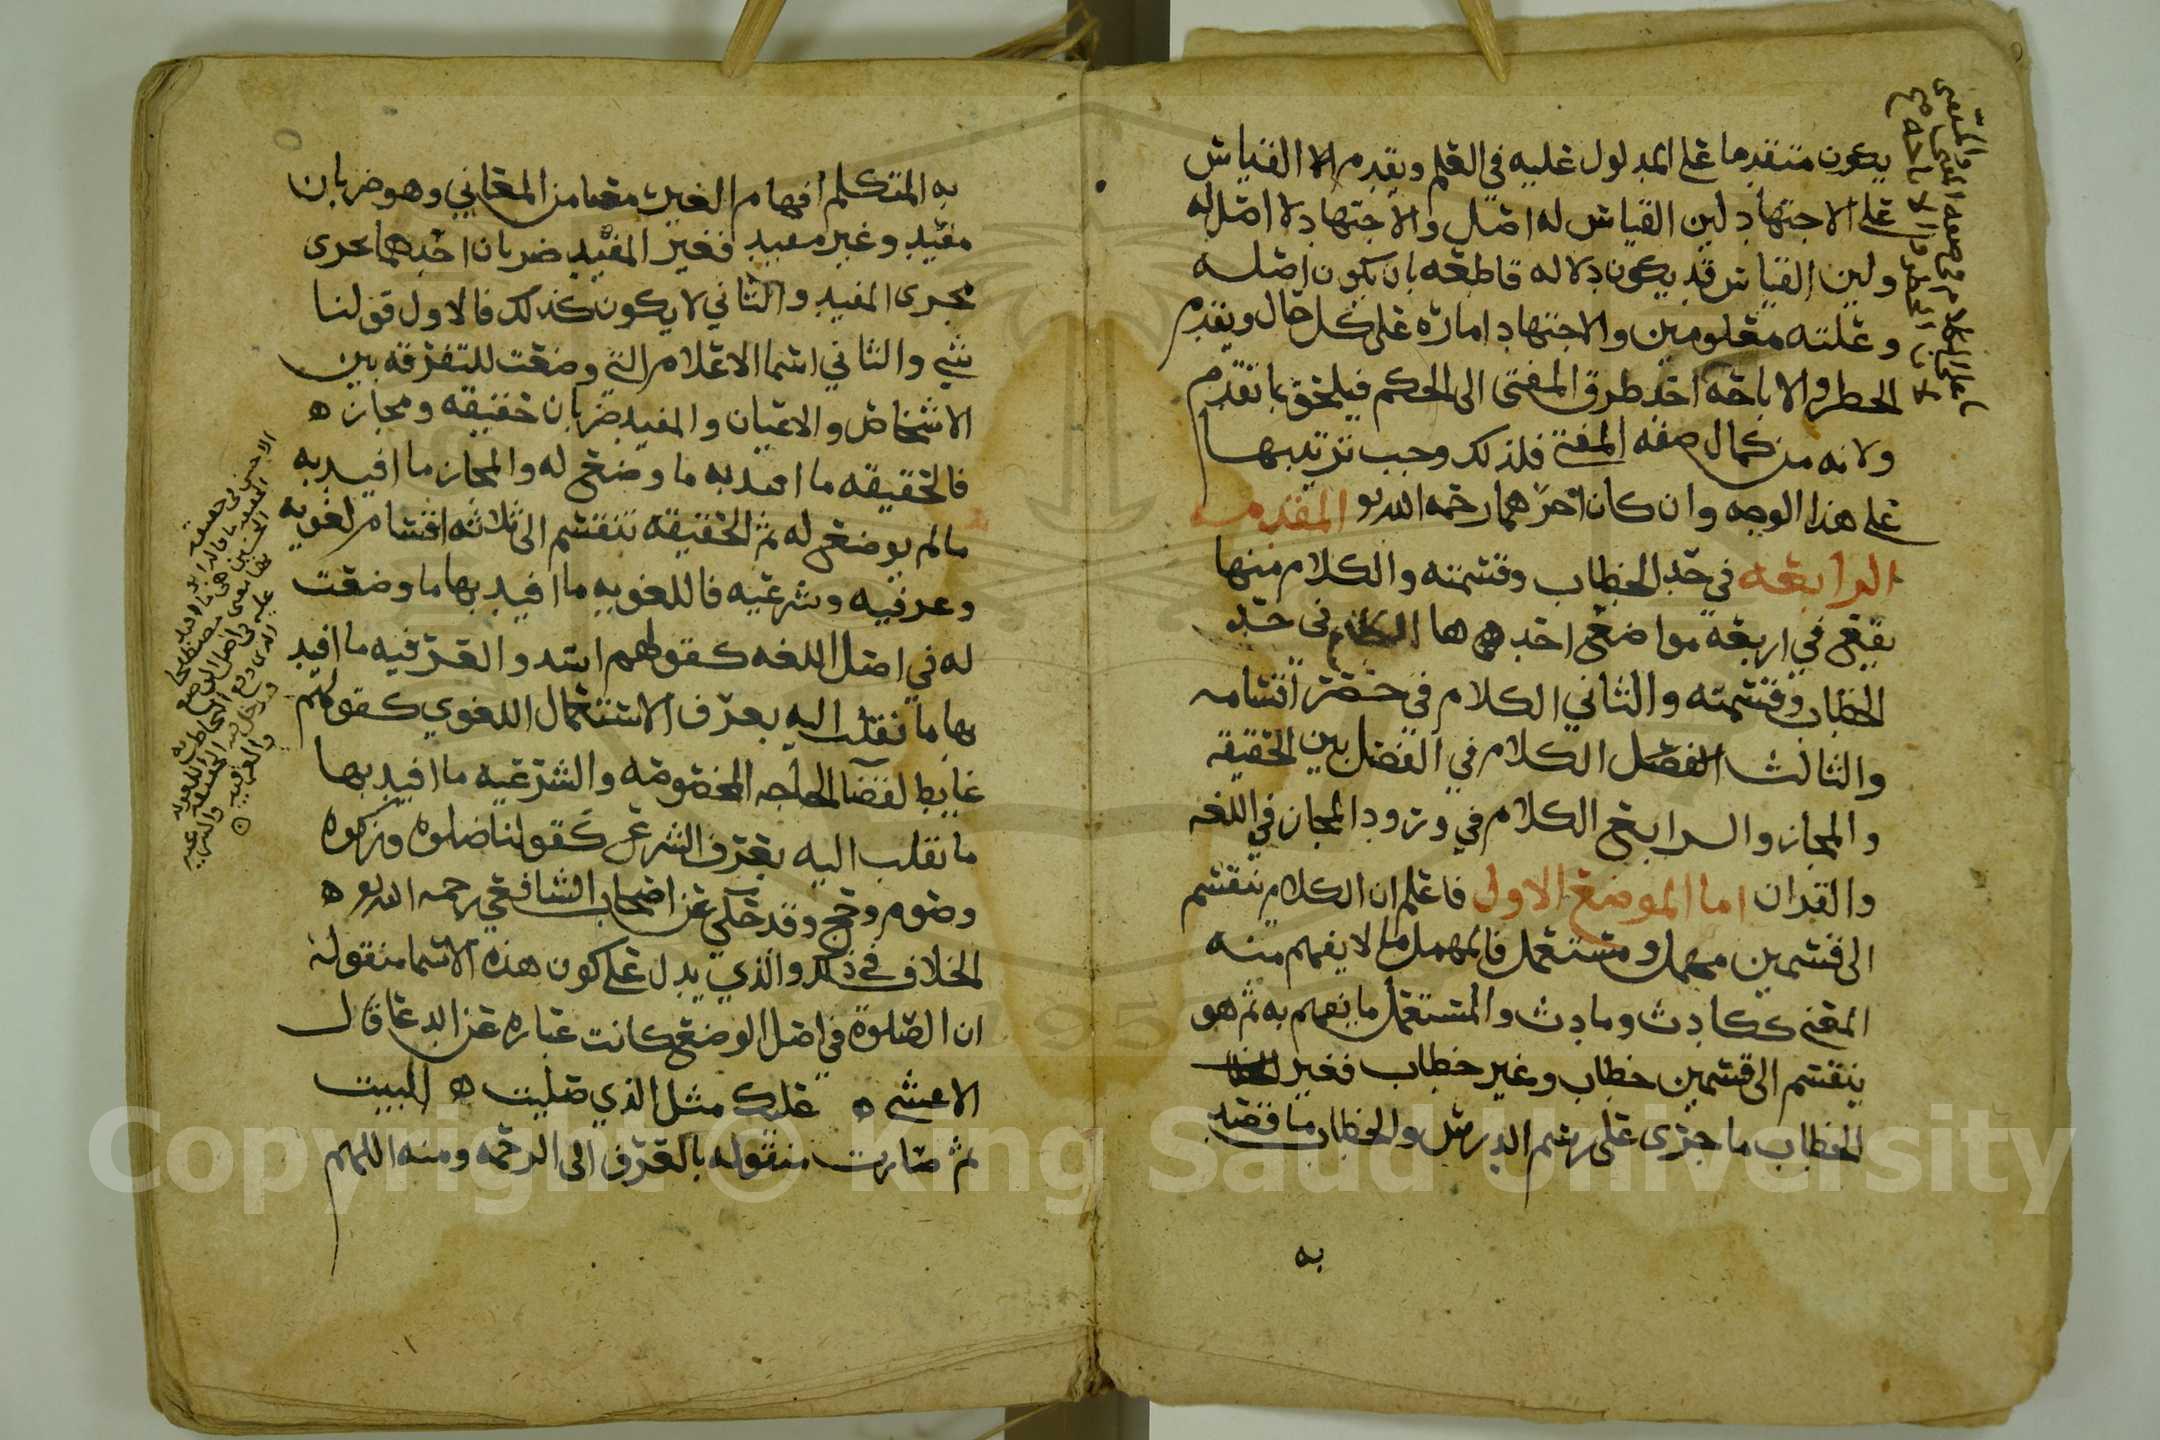 يكون متقدما على المدلول عليه في العلم ويقدم الا القياس
على الاجتهاد لين القياس له اصل والاجتهاد لا اصل له
ولين القياس قد يكون دلاله قاطعه بان يكون اصله
وعلته معلومين والاجتهاد اماره على كل حال ويقدم
الحظر والاباحه احد طرق المفتى الى الحكم فيلحق بما تقدم
ولانه من كمال صفه المفتي فلذلك وجب ترتيبها
على هذا الوجه وان كان اخرهما رحمه الله المقدمه
الرابعه في حد الخطاب وقسمته والكلام منها
يقع في اربعة مواضع احدها الكلام في حد
الخطاب وقسمته والثاني الكلام في حصر اقسامه
والثالث الفصل الكلام في الفصل بين الحقيقه
والمجاز والرابع الكلام في ورود المجاز في اللغه
والقران اما الموضع الاول فاعلم ان الكلام ينقسم
الى قسمين مهمل ومستعمل فالمهمل ما لا يفهم منه
المعنى ككادث ومادث والمستعمل ما يفهم به ثم هو
ينقسم الى قسمين خطاب وغير خطاب فغير
الخطاب ما جرى على رسم الدرس والخطاب ما قصد
به
به المتكلم افهام الغير معنا من المعاني وهو ضربان
مفيد وغير مفيد فغير المفيد ضربان احدهما يجرى
مجرى المفيد والثاني لا يكون كذلك فالاول قولنا
شي والثاني اسما الاعلام التي وضعت للتفرقه بين
الاشخاص والاعيان والمفيد ضربان حقيقه ومجاز ه
فالحقيقه ما افيد به ما وضع له والمجاز ما افيد به
ما لم يوضع له ثم الحقيقه تنقسم الى ثلاثه اقسام لغويه
وعرفيه وشرعيه فاللغويه ما افيد بها ما وضعت
له في اصل اللغه كقولهم اسد والعرفيه ما افيد
بها ما نقلت اليه بعرف الاستعمال اللغوي كقولهم
غايط لقضا الحاجه المخصوصه والشرعيه ما افيد بها
ما نقلت اليه بعرف الشرع كقولنا صلوه وزكوه
وصوم وحج وقد حكي عن اصحاب الشافعي رحمه الله ه
الخلاف في ذلك والذي يدل على كون هذه الاسما منقوله
ان الصلوة في اصل الوضع كانت عباره عن الدعا قال
الاعشى ه عليك مثل الذي صليت ه البيت
ثم صارت منقوله بالعرف الى الرحمه ومنه اللهم
Copyright © King Saud University